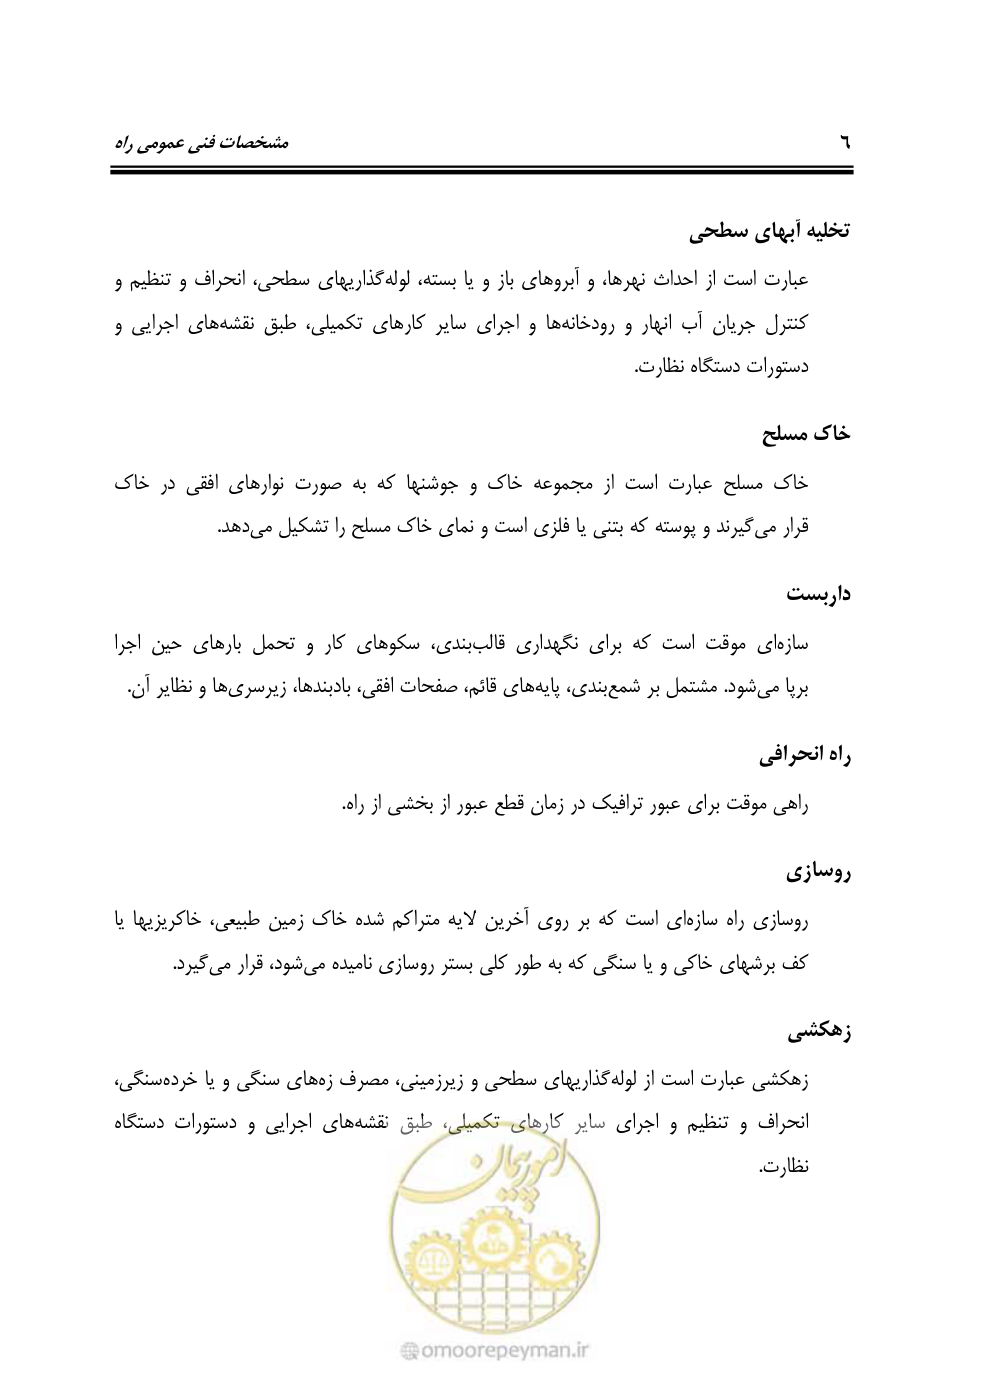 ٦
مشخصات فنی عمومی راه
تخلیه آبهای سطحی
عبارت است از احداث نهرها، و آبروهای باز و یا بسته، لوله‌گذاریهای سطحی، انحراف و تنظیم و
کنترل جریان آب انهار و رودخانه‌ها و اجرای سایر کارهای تکمیلی، طبق نقشه‌های اجرایی و
دستورات دستگاه نظارت.
خاک مسلح
خاک مسلح عبارت است از مجموعه خاک و جوشنها که به صورت نوارهای افقی در خاک
قرار می‌گیرند و پوسته که بتنی یا فلزی است و نمای خاک مسلح را تشکیل می‌دهد.
داربست
سازه‌ای موقت است که برای نگهداری قالب‌بندی، سکوهای کار و تحمل بارهای حین اجرا
برپا می‌شود. مشتمل بر شمع‌بندی، پایه‌های قائم، صفحات افقی، بادبندها، زیرسری‌ها و نظایر آن.
راه انحرافی
راهی موقت برای عبور ترافیک در زمان قطع عبور از بخشی از راه.
روسازی
روسازی راه سازه‌ای است که بر روی آخرین لایه متراکم شده خاک زمین طبیعی، خاکریزیها یا
کف برشهای خاکی و یا سنگی که به طور کلی بستر روسازی نامیده می‌شود، قرار می‌گیرد.
زهکشی
زهکشی عبارت است از لوله‌گذاریهای سطحی و زیرزمینی، مصرف زه‌های سنگی و یا خرده‌سنگی،
انحراف و تنظیم و اجرای سایر کارهای تکمیلی، طبق نقشه‌های اجرایی و دستورات دستگاه
نظارت.
امورپیمان
omoorepeyman.ir